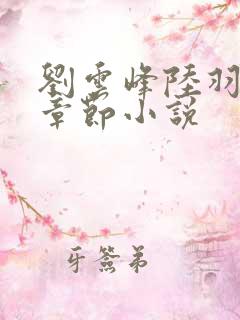 劉雲峰陸羽
章節小説
牙簽弟